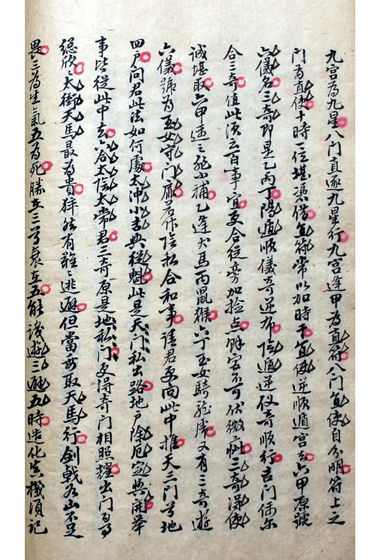 九宫为九星八门直逐九星行九宫逢甲为直符八门直使自分明符上之
门為直使十時一位堪凭據直符常以加時干直使逆順遁宫去六甲原號
六儀名三奇即是乙丙丁陽遁順儀奇逆布陰遁逆仪奇順行吉门偶尔
合三奇值此須云百事宜更合從旁加捡点餘宮不可伏微疵三奇得使
诚堪取六甲遇之非小補乙逢犬馬丙鼠猴六丁玉女騎龍虎又有三奇遊
六儀號為玉女守门扉若作陰私合和事請君更向此中推天三门兮地
四户问君此法如何處太冲小吉與從魁此是天门私出路地户除厄定與開举
事皆從此中去六合太陰太常君三奇原是地私门更得奇门相照耀出门百事
總欣欣太衝天馬最為貴猝然有難逃避但當取天馬行剑戟如山不足
畏三為生氣五為死勝在三兮衰在五能識遊三避五時造化真機須記